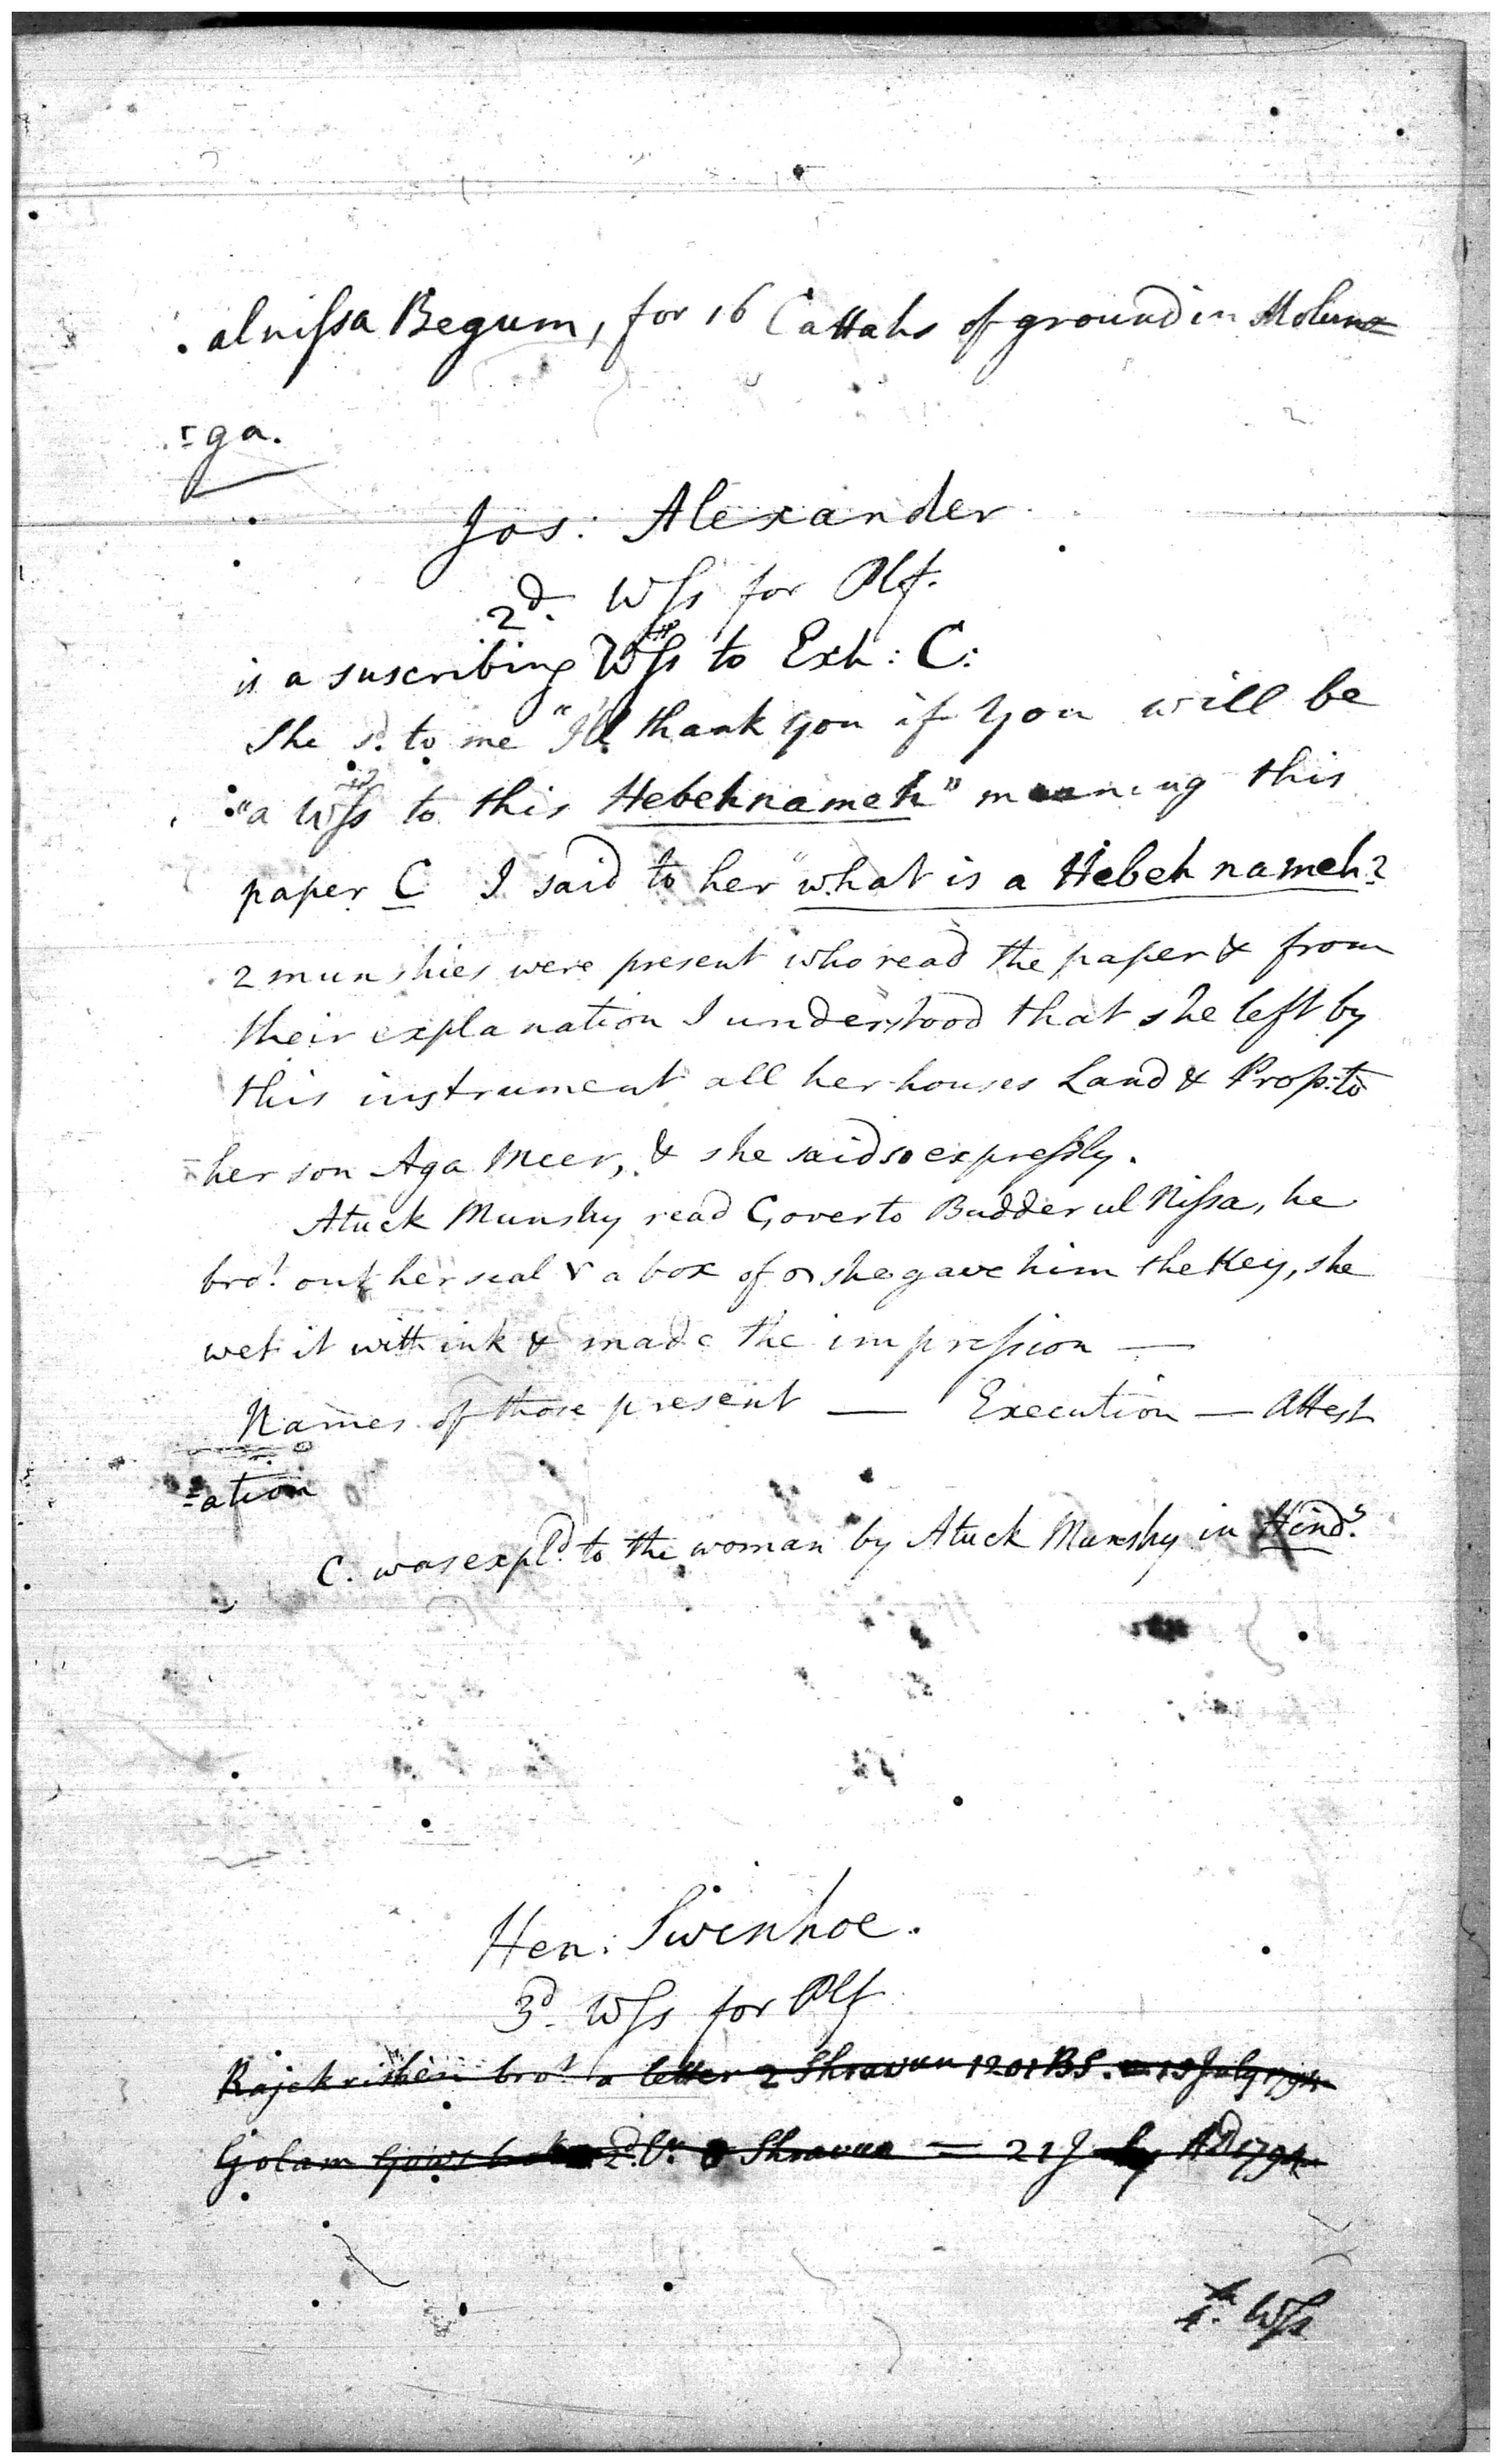 alnissa Begum, for 16 Cattahs of ground in Molun=
=ga.
Jos: Alexander
2d. Wss for Plf.
is a suscribing Wss to Exh: C:
She sd. to me "I'll thank you if you will be
"a Wss to this Hebehnameh" meaning this
paper C I said to her "what is a Hebeh nameh?
2 munshies were present who read the paper & from
their explanation I understood that she left by
this instrument all her houses Land & Prop: to
her son Aga Meer, & she said so expressly.
Atuck Munshy read C, over to Budder ul Nissa, he
brot. out her seal & a box of she gave him the Key, she
wet it with ink & made the impression —
Names of those present — Execution — Attest
=ation
C. was expld. to the woman by Atuck Munshy in Hinds.
Hen: Swinhoe.
3d. Wss for Plf
Rajekrishen brot a letter 2 Shravun 1201 BS. 15 July 1794
Golam Shravun = 21 July AD 1794
Wss